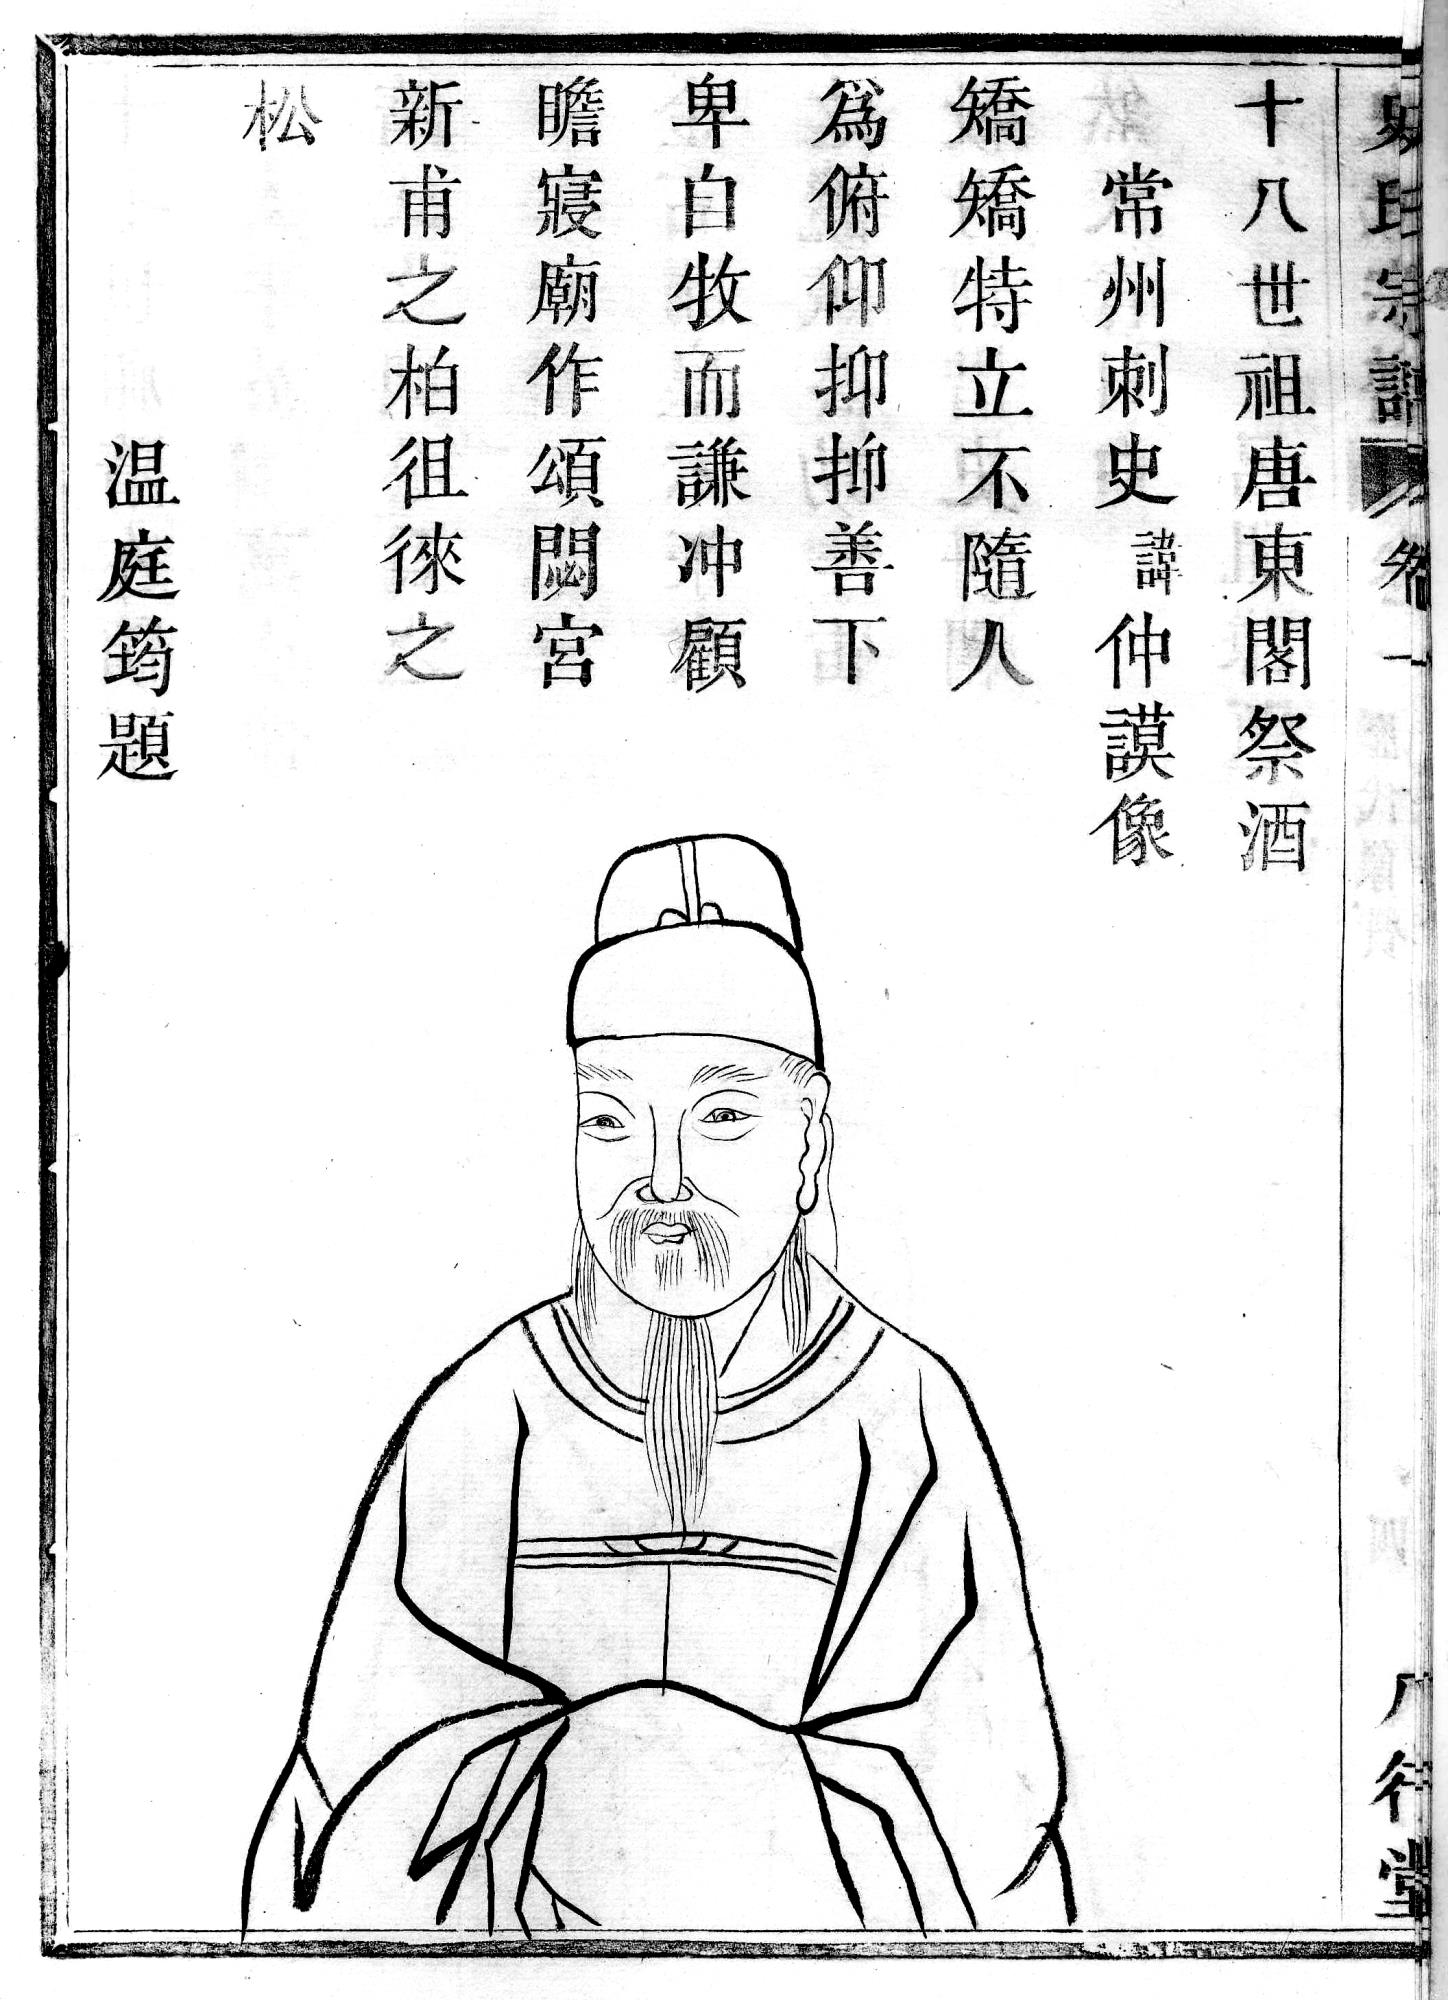 十八世祖唐東閣祭酒
常州刺史諱仲謨像
矯矯特立不隨人
爲俯仰抑抑善下
卑自牧而謙冲顧
瞻寢廟作頌閟宮
新甫之柏徂徠之
松
温庭筠題